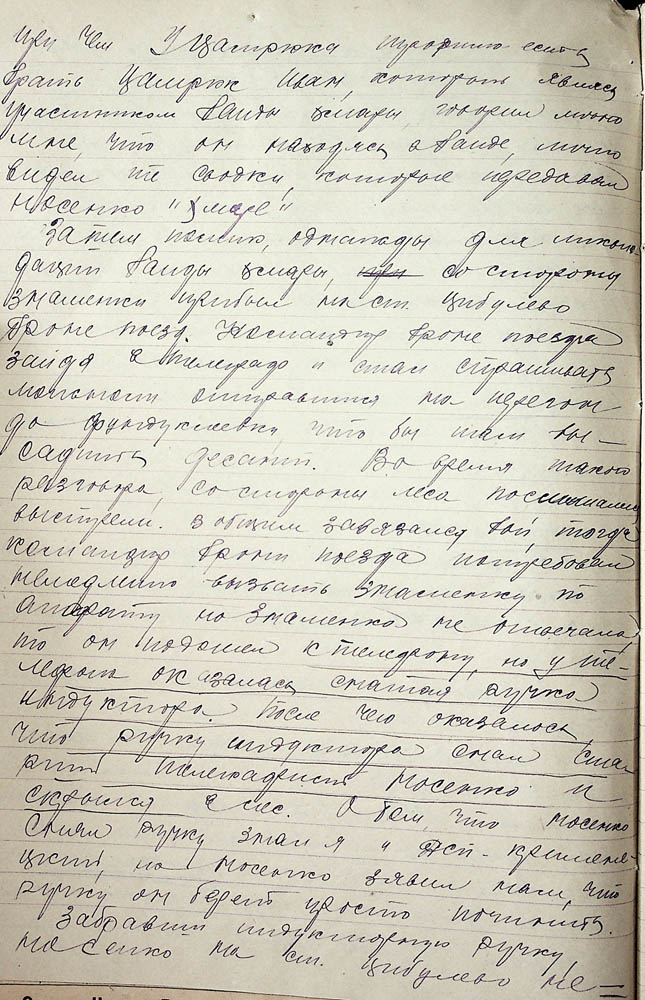 при чем У Цамрюка имеется
брать Цамрюк Иван, которой являясь
участником банды Хмары, говорил лично
мне, что он находясь в банде, лично
видел те сводки, которые передавал
Мосенко "Хмаре"
Затем помню, однажды для ликви-
дации банды Хмары, со стороны
Знаменки прибыл на ст. Цибулево
броне поезд. Командир броне поезда
зайдя в телеграф и стал спрашивать
можности отправится на перегон
до Фундуклеевки, что бы там вы-
садить десант. Во время такого
разговора, со стороны леса послышались
выстрелы. В общем завязался бой, тогда
командир броне поезда потребовал
немедленно вызвать Знаменку по
апарату но Знаменка не отвечала,
то он подошел к телефону, но у те-
лефона оказалась снятая ручка
индуктора. После чего оказалось,
что ручку индуктора снял ста-
рший телеграфист Мосенко и
скрылся в лес. О том, что Мосенко
снял ручку знал я и
но Мосенко заявил нам, что
ручку он берет просто починить.
Забравши индукторную ручку,
Мосенко на ст. Цибулево не-